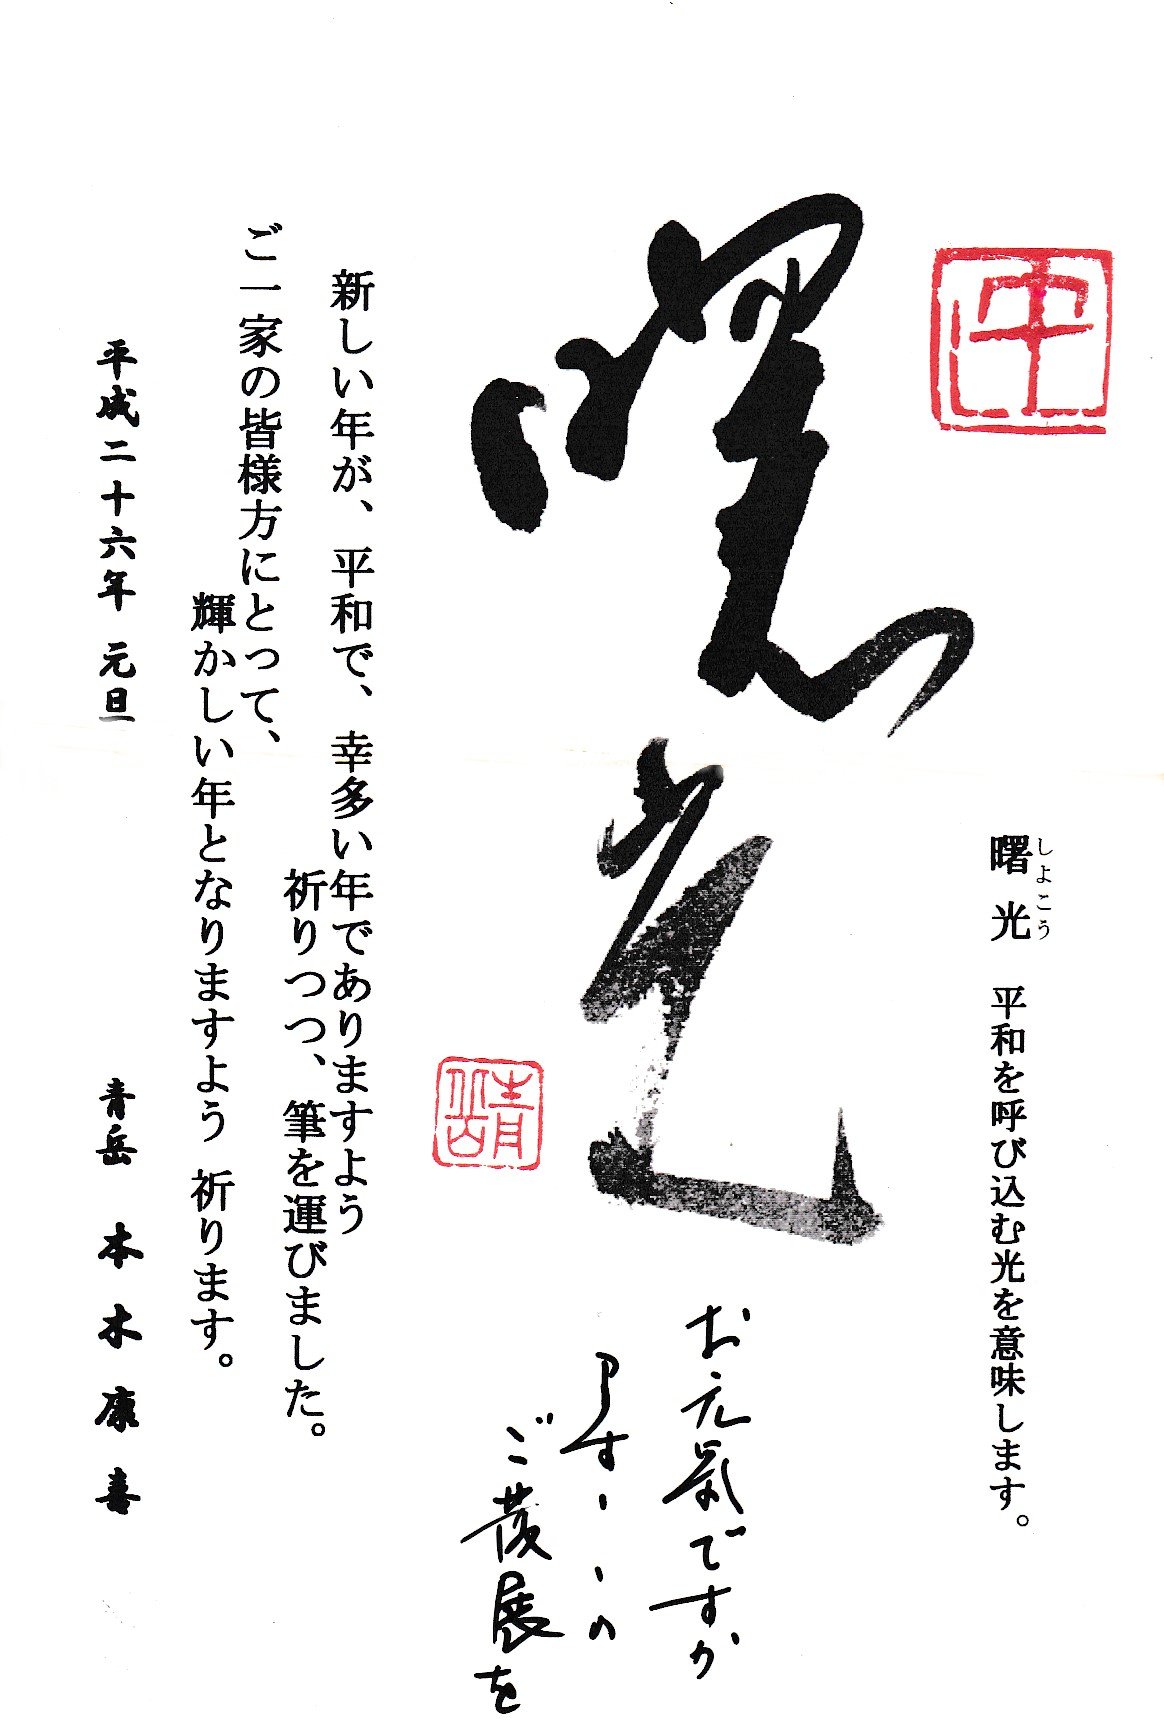 午
曙光
しよこう
曙光 平和を呼び込む光を意味します。
青岳
お元気ですか
ますますの
ご発展を
新しい年が、平和で、幸多い年でありますよう
祈りつつ、筆を運びました。
ご一家の皆様方にとって、
輝かしい年となりますよう 祈ります。
平成二十六年 元旦
青岳 本木康喜